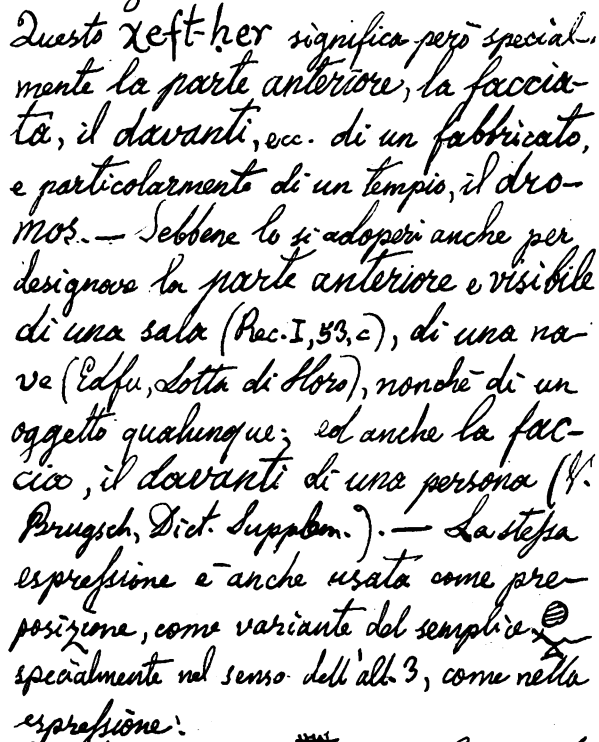 Questo χeft-ḥer significa però special-
mente la parte anteriore, la faccia-
ta, il davanti, ecc. di un fabbricato,
e particolarmente di un tempio, il dro-
mos. — Sebbene lo si adoperi anche per
designare la parte anteriore e visibile
di una sala (Rec. I, 53, c), di una na-
ve (Edfu, Lotta di Horo), nonchè di un
oggetto qualunque; ed anche la fac-
cia, il davanti di una persona (V.
Brugsch, Dict. Supplem.). — La stessa
espressione è anche usata come pre-
posizione, come variante del semplice
specialmente nel senso dell'all. 3, come nella
espressione: